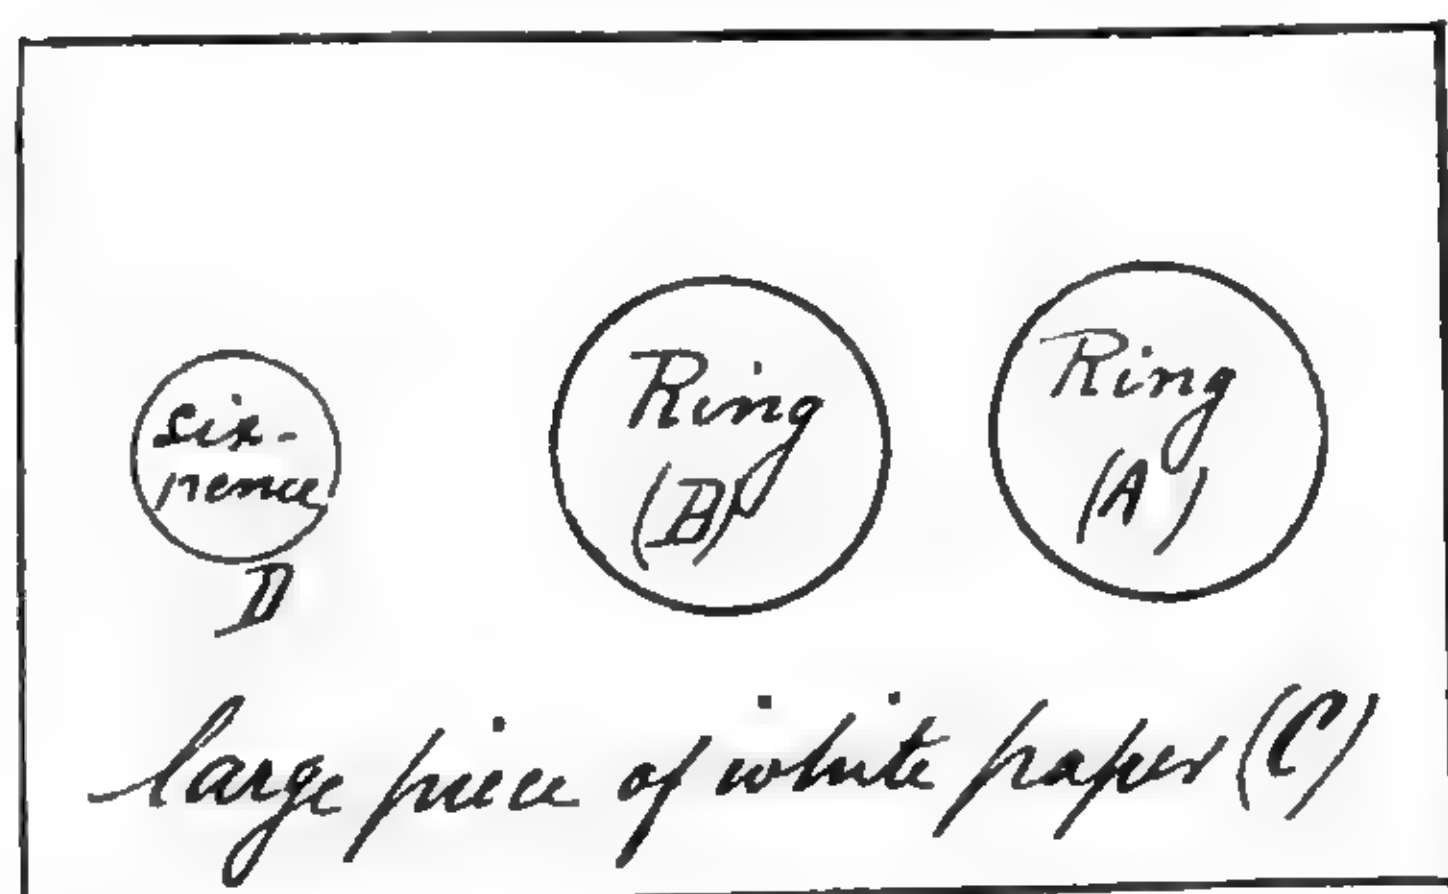 six-
pence
D
Ring
(B)
Ring
(A)
large piece of white paper (C)